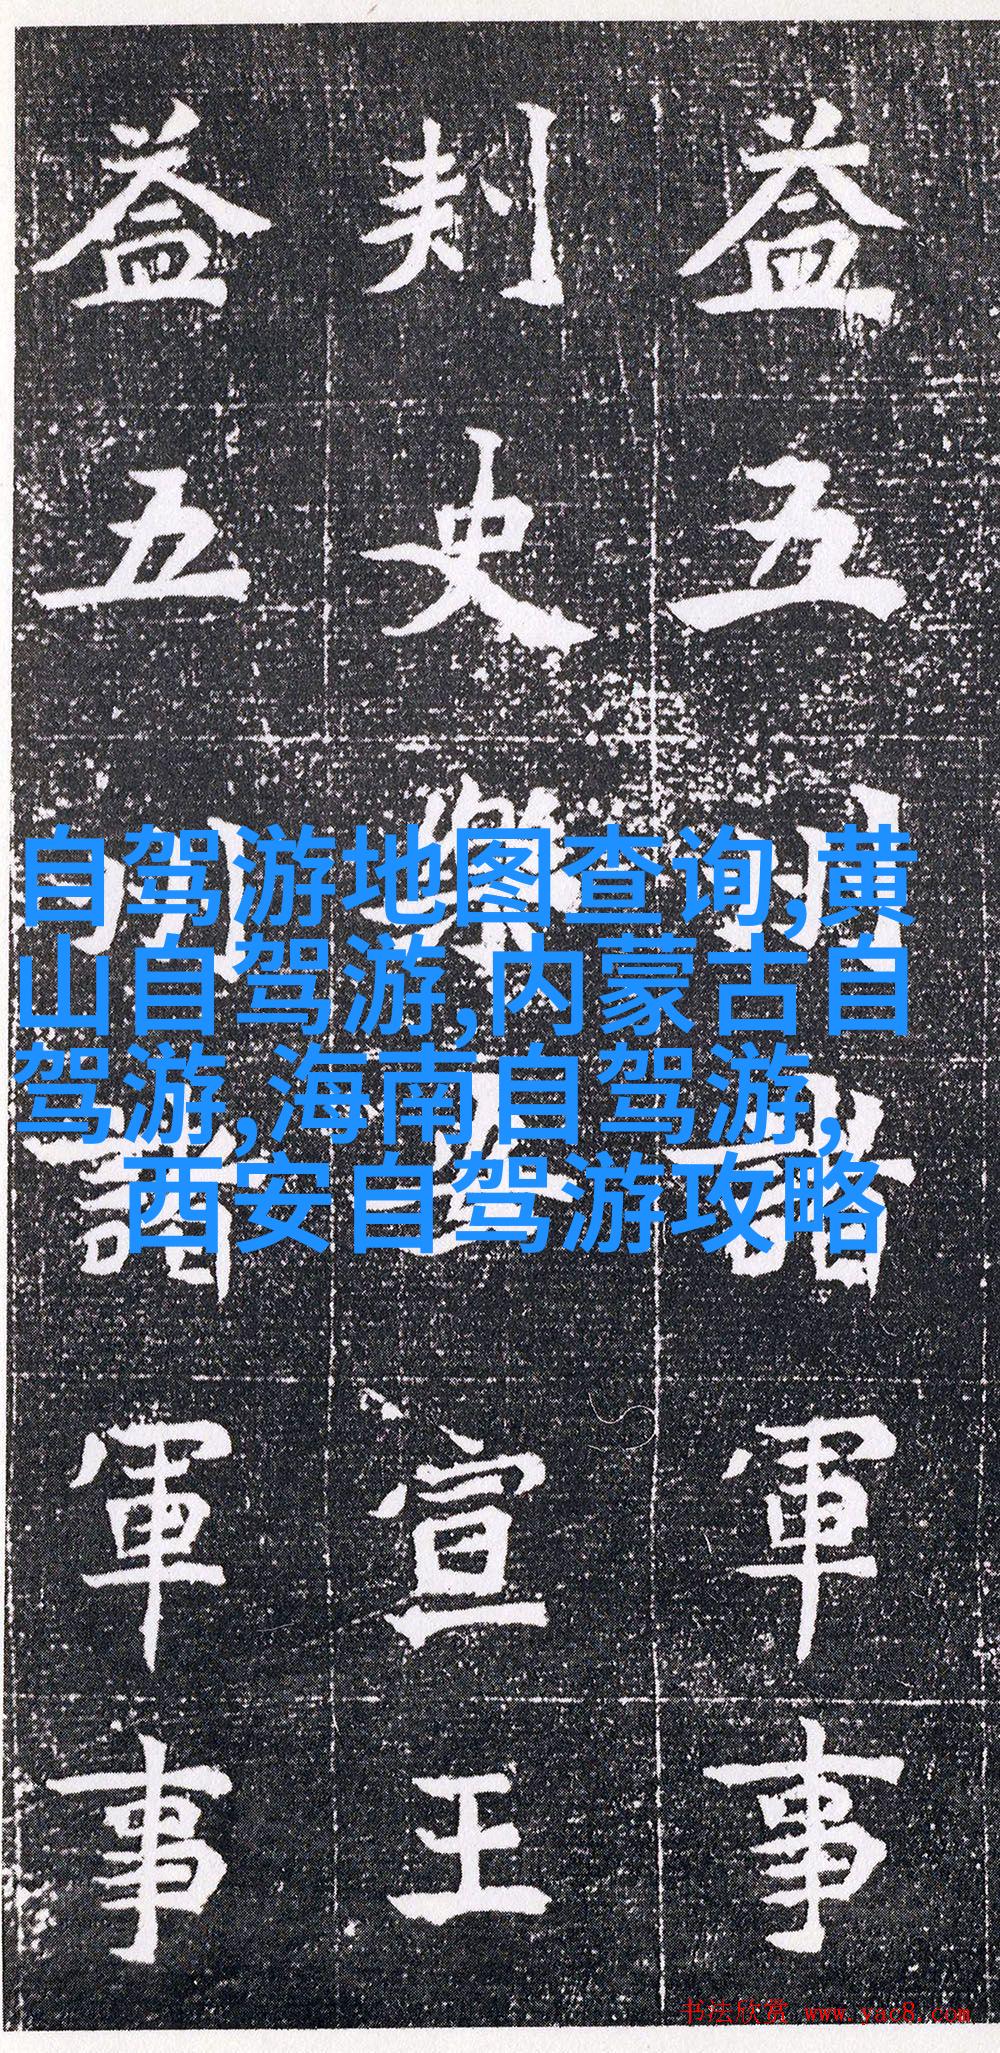 益五州諸軍事
刺史樂宣王
益五州諸軍事
自驾游地图查询,黄
山自驾游,内蒙古自
驾游,海南自驾游,
西安自驾游攻略
书法欣赏 www.yac8.com